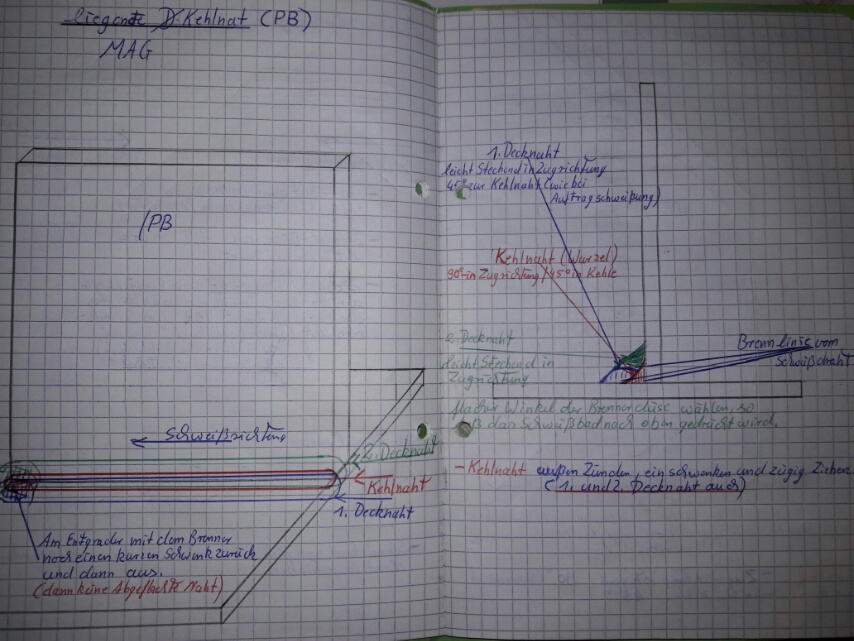 liegende Kehlnat (PB)
MAG
PB
Schweißrichtung
2. Decknaht
Kehlnaht
1. Decknaht
Am Entgrader mit dem Brenner
noch einen kurzen Schwenk zurück
und dann aus.
(dann keine Abgeflachte Naht)
1. Decknaht
leicht Stechend in Zugrichtung
45° zur Kehlnaht (wie bei
Auftragschweißung)
Kehlnaht (Wurzel)
90° in Zugrichtung / 45° in Kehle
2. Decknaht
leicht Stechend in
Zugrichtung
Brennlinie vom
Schweißdraht
flacher Winkel der Brennerdüse wählen, so
das Schweißbad nach oben gedrückt wird.
- Kehlnaht außen Zünden, ein schwenken und zügig Ziehen.
(1. und 2. Decknaht auch)